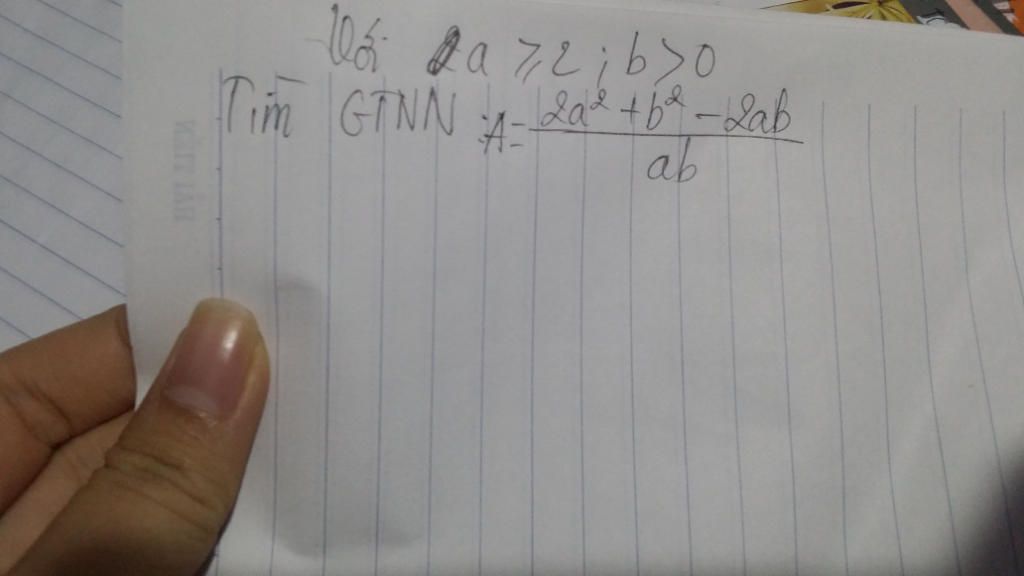 Với a ≥ 2 ; b > 0
Tìm GTNN : A = \frac{2a² + b² - 2ab}{ab}